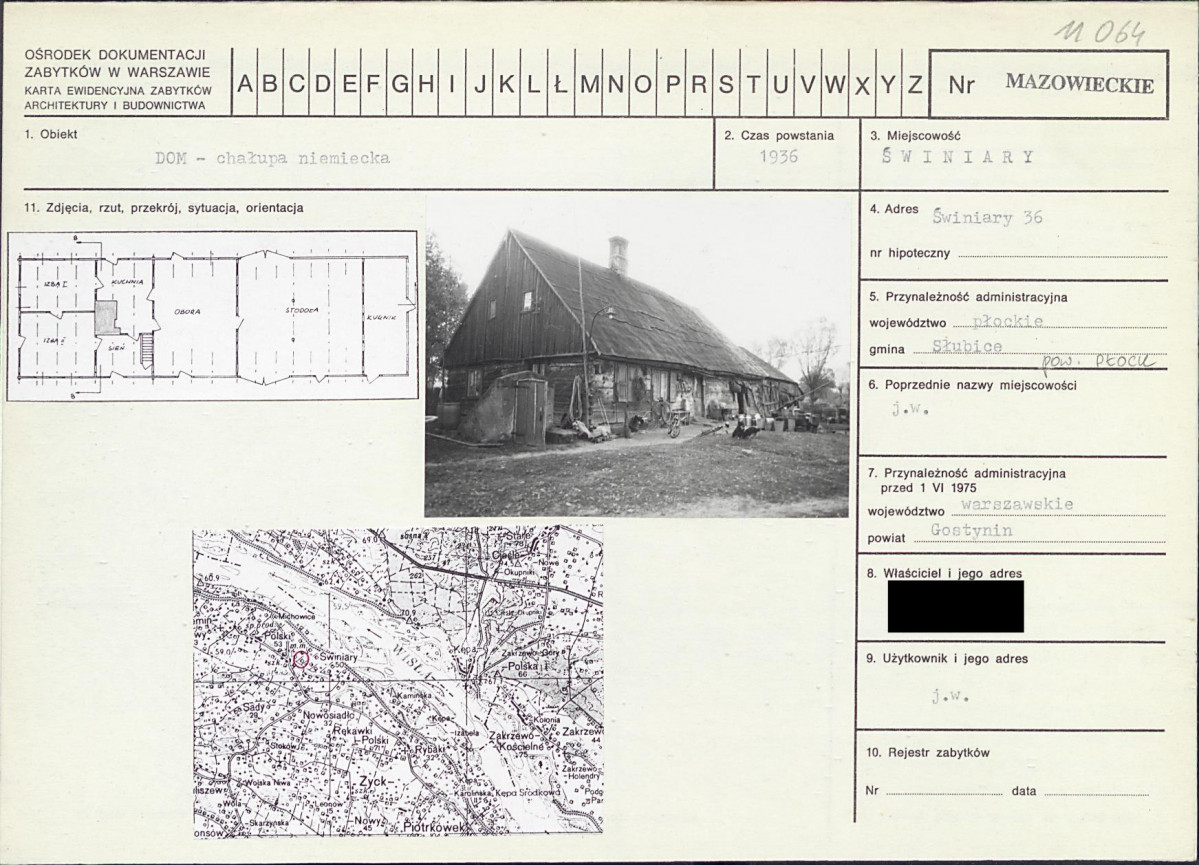 11 064
OŚRODEK DOKUMENTACJI
ZABYTKÓW W WARSZAWIE
KARTA EWIDENCYJNA ZABYTKÓW
ARCHITEKTURY I BUDOWNICTWA
A B C D E F G H I J K L Ł M N O P R S T U V W X Y Z
Nr MAZOWIECKIE
1. Obiekt
DOM - chałupa niemiecka
2. Czas powstania
1936
3. Miejscowość
ŚWINIARY
11. Zdjęcia, rzut, przekrój, sytuacja, orientacja
IZBA I
KUCHNIA
OBORA
STODOŁA
KURNIK
IZBA 2
SIEŃ
4. Adres Świniary 36
nr hipoteczny
5. Przynależność administracyjna
województwo płockie
gmina Słubice
pow. PŁOCK
6. Poprzednie nazwy miejscowości
j.w.
7. Przynależność administracyjna
przed 1 VI 1975
województwo warszawskie
powiat Gostynin
8. Właściciel i jego adres
9. Użytkownik i jego adres
j.w.
10. Rejestr zabytków
Nr data
60.9
69.0
Stare
Nowe
Okupniki
262
59,5
70,9
Michowice
Polski
53
59.0
Świniary
50
WISŁA
Kępa
Polska
66
Zakrzewo-Góry
Sady
29
Nowosiadło
32
Kamińska
Rękawki
Polski
Kępa
Izabela
Kolonia
Zakrzewo
Kościelne
75
Zakrzewo
44
Rybaki
Zakrzewo-
Holendry
Wolska Niwa
Życk
Kępa
Karolińska
Kępa Środkowa
Wola
Leonów
Skarżyńska
Nowy
45
Piotrkówek